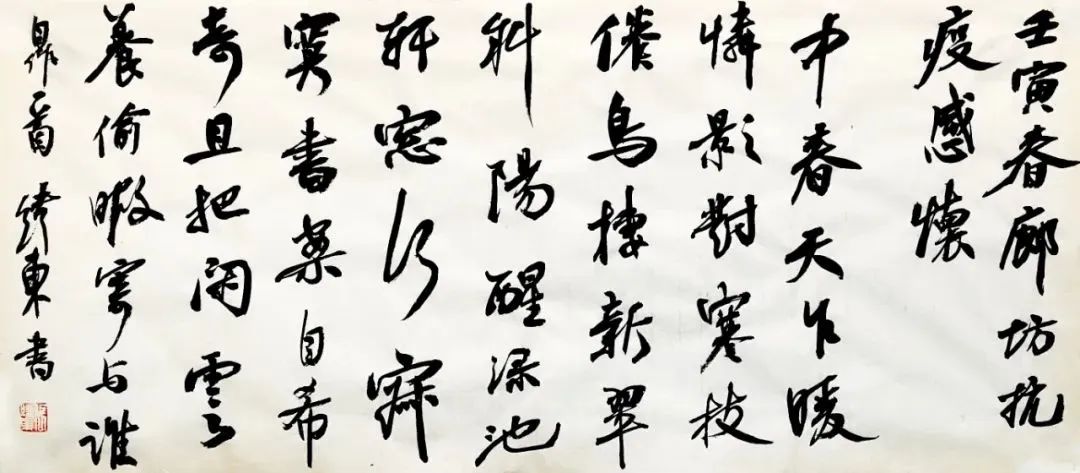 壬寅春廊坊抗
疫感懷
中春天乍暖
憐影對寒枝
倦鳥棲新翠
斜陽醒渌池
軒窓行寂
寞書案自希
奇且把閑雲
養偷暇寄与誰
東書